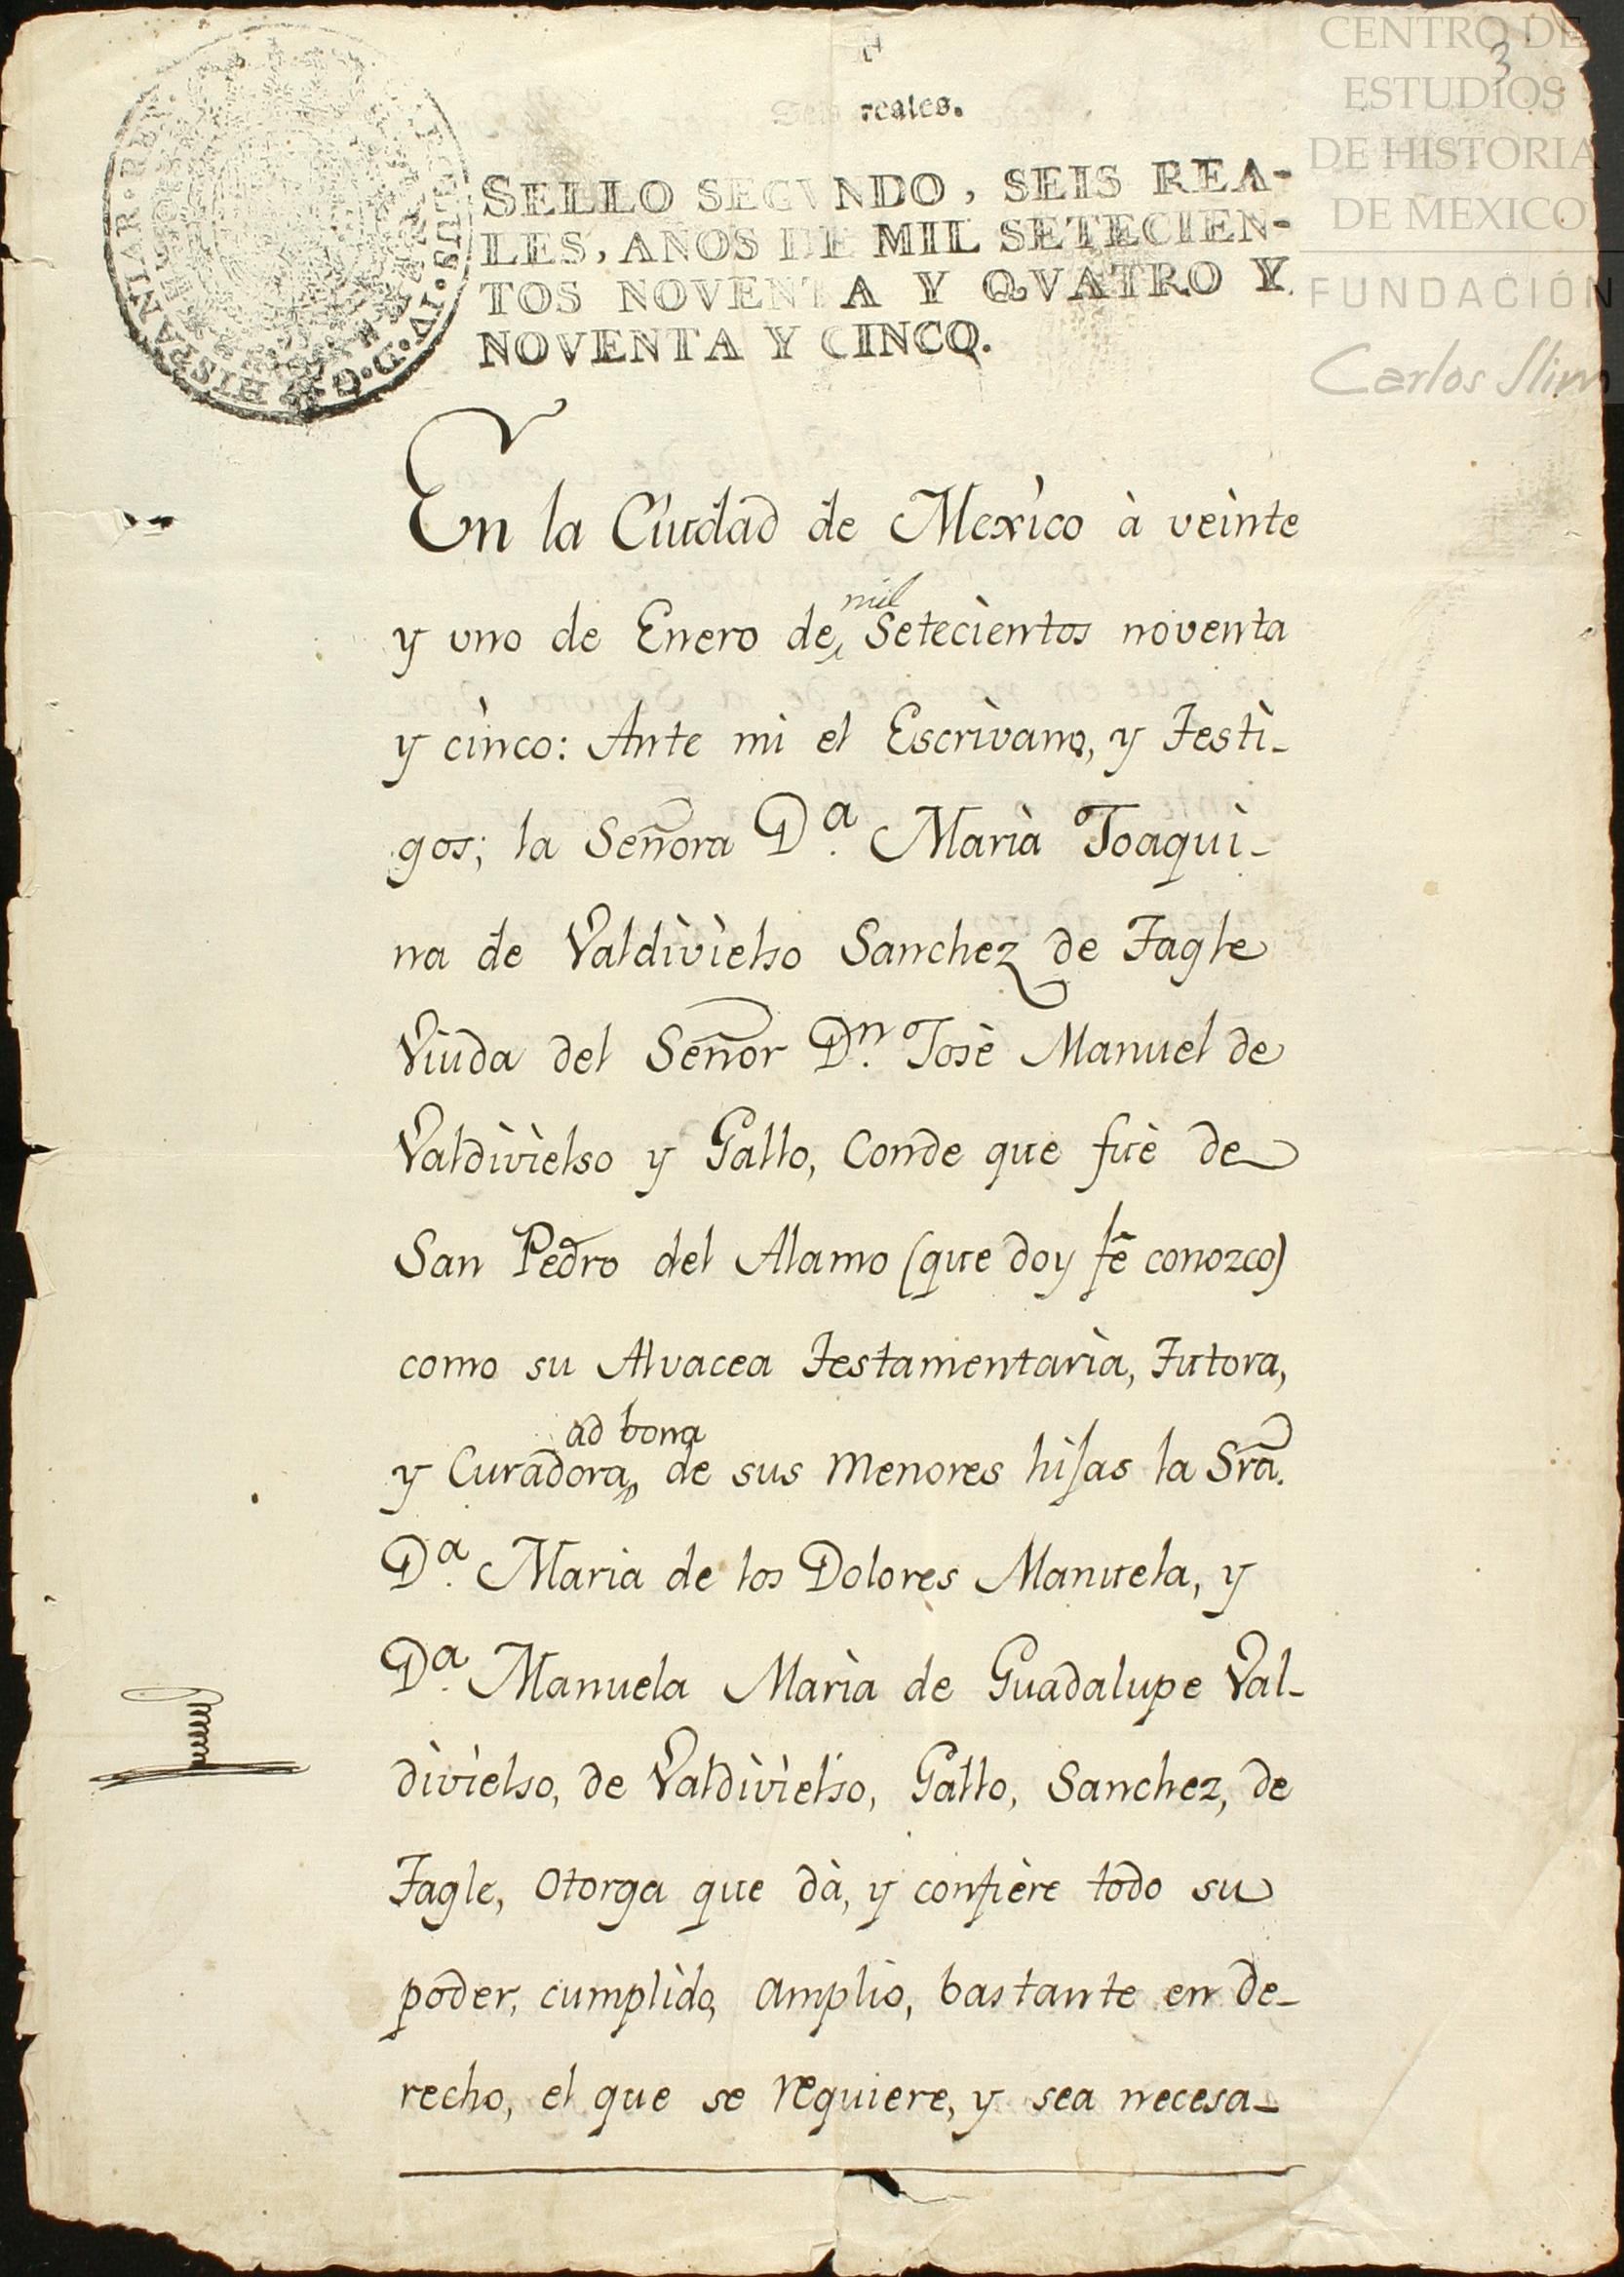 CENTRO DE
ESTUDIOS
DE HISTORIA
DE MEXICO
FUNDACIÓN
Carlos Slim
3
Seis reales.
SELLO SEGVNDO, SEIS REA-
LES, AÑOS DE MIL SETECIEN-
TOS NOVENTA Y QVATRO Y
NOVENTA Y CINCO.
HISPANIAR·REX
En la Ciudad de Mexìco à veìnte
mil
y uno de Enero de Setecìentos noventa
y cìnco: Ante mì el Escrìvano, y Testì-
gos; la Señora D.ª Marìa Joaquì-
na de Valdìvìelso Sanchez de Tagle
Vìuda del Señor D.n Josè Manuel de
Valdìvìelso y Gallo, Conde que fuè de
San Pedro del Alamo (que doy fè conozco)
como su Alvacea Testamentarìa, Tutora,
ad bona
y Curadora, de sus Menores hijas la Srã.
D.ª Marìa de los Dolores Manuela, y
D.ª Manuela Marìa de Guadalupe Val-
dìvìelso, de Valdìvìelso, Gallo, Sanchez, de
Tagle, Otorga que dà, y confìere todo su
poder, cumplìdo, amplìo, bastante en de-
recho, el que se requiere, y sea necesa-